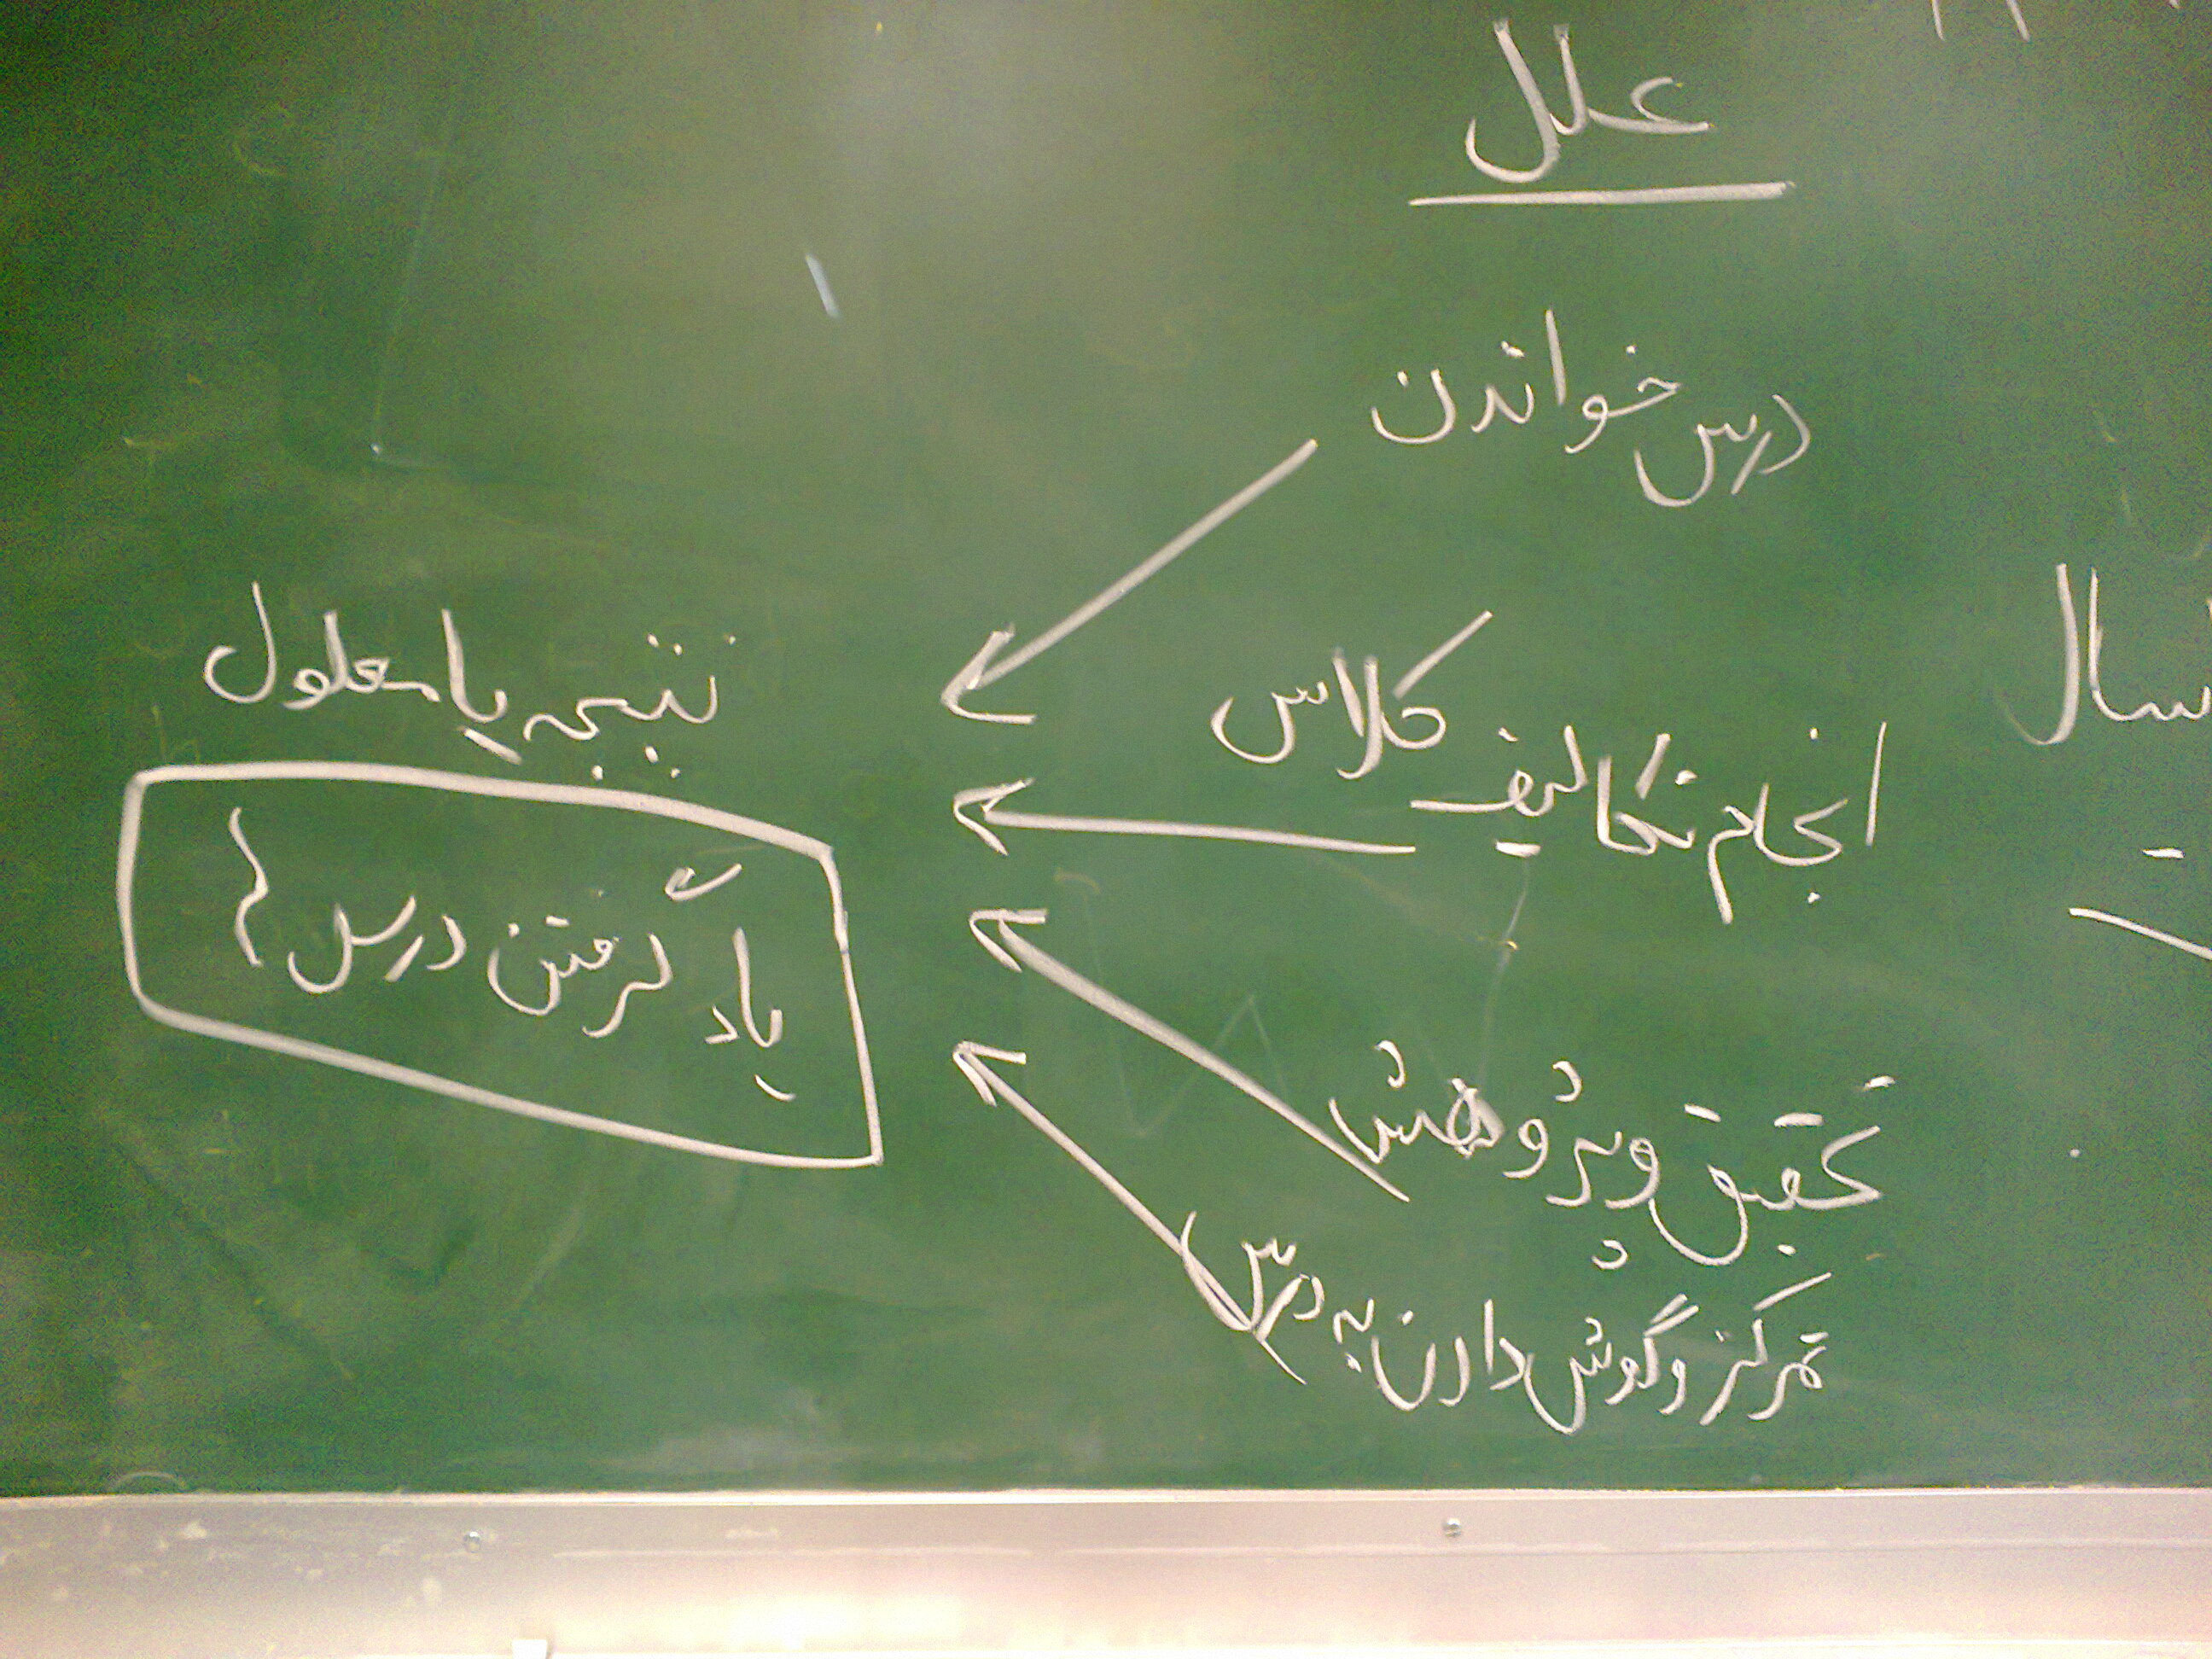 علل
درس خواندن
انجام تکالیف کلاس
تحقیق و پژوهش
تمرکز و گوش دادن به درس
نتیجه یا معلول
یاد گرفتن درس
سال